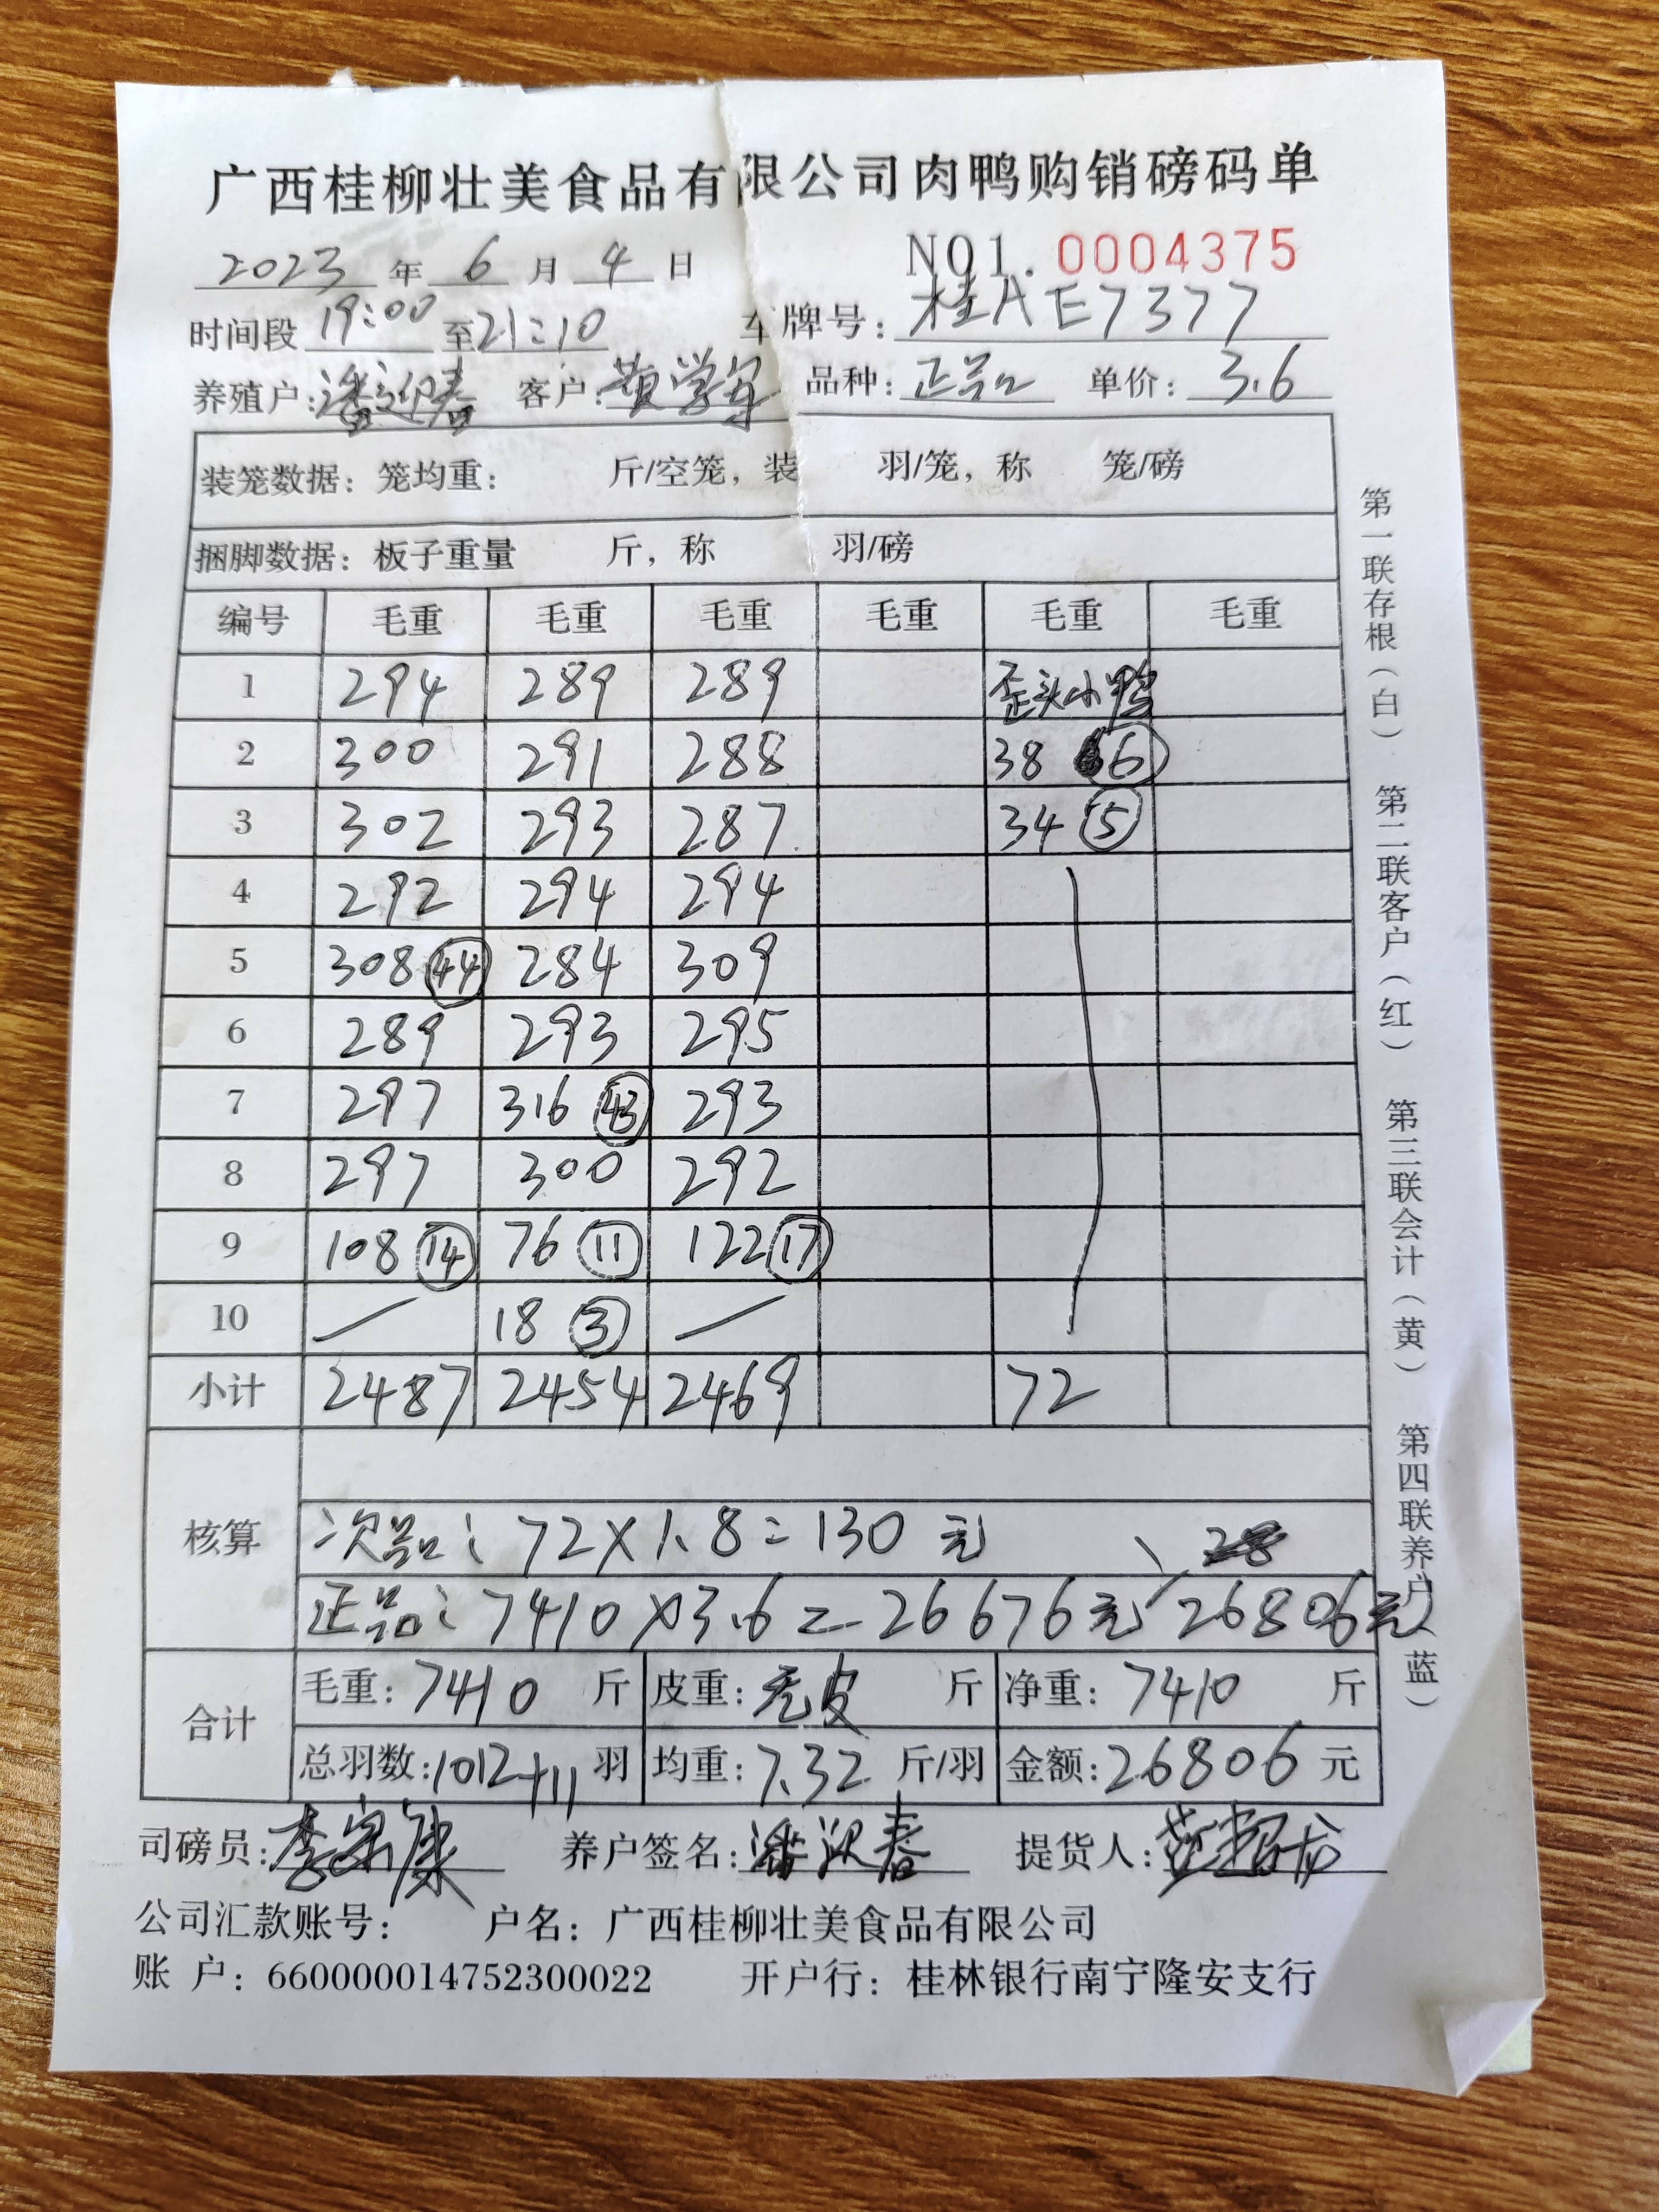 广西桂柳壮美食品有限公司肉鸭购销磅码单
2023 年 6 月 4 日 NO1. 0004375
时间段 19:00 至 21:10 车牌号: 桂A E7377
养殖户: 潘迎春 客户: 黄学军 品种: 正品 单价: 3.6
装笼数据: 笼均重: 斤/空笼, 装 羽/笼, 称 笼/磅
捆脚数据: 板子重量 斤, 称 羽/磅
编号 毛重 毛重 毛重 毛重 毛重 毛重
1 294 289 289 歪头小鸭
2 300 291 288 38 6
3 302 293 287 34 5
4 292 294 294
5 308 44 284 309
6 289 293 295
7 297 316 43 293
8 297 300 292
9 108 14 76 11 122 17
10 / 18 3 /
小计 2487 2454 2469 72
核算
次品: 72×1.8=130 元
正品: 7410×3.6=26676元 26806元
合计 毛重: 7410 斤 皮重: 无皮 斤 净重: 7410 斤
总羽数: 1012+11 羽 均重: 7.32 斤/羽 金额: 26806 元
司磅员: 李宗康 养户签名: 潘迎春 提货人:
公司汇款账号: 户名: 广西桂柳壮美食品有限公司
账 户: 660000014752300022 开户行: 桂林银行南宁隆安支行
第一联存根(白) 第二联客户(红) 第三联会计(黄) 第四联养户(蓝)